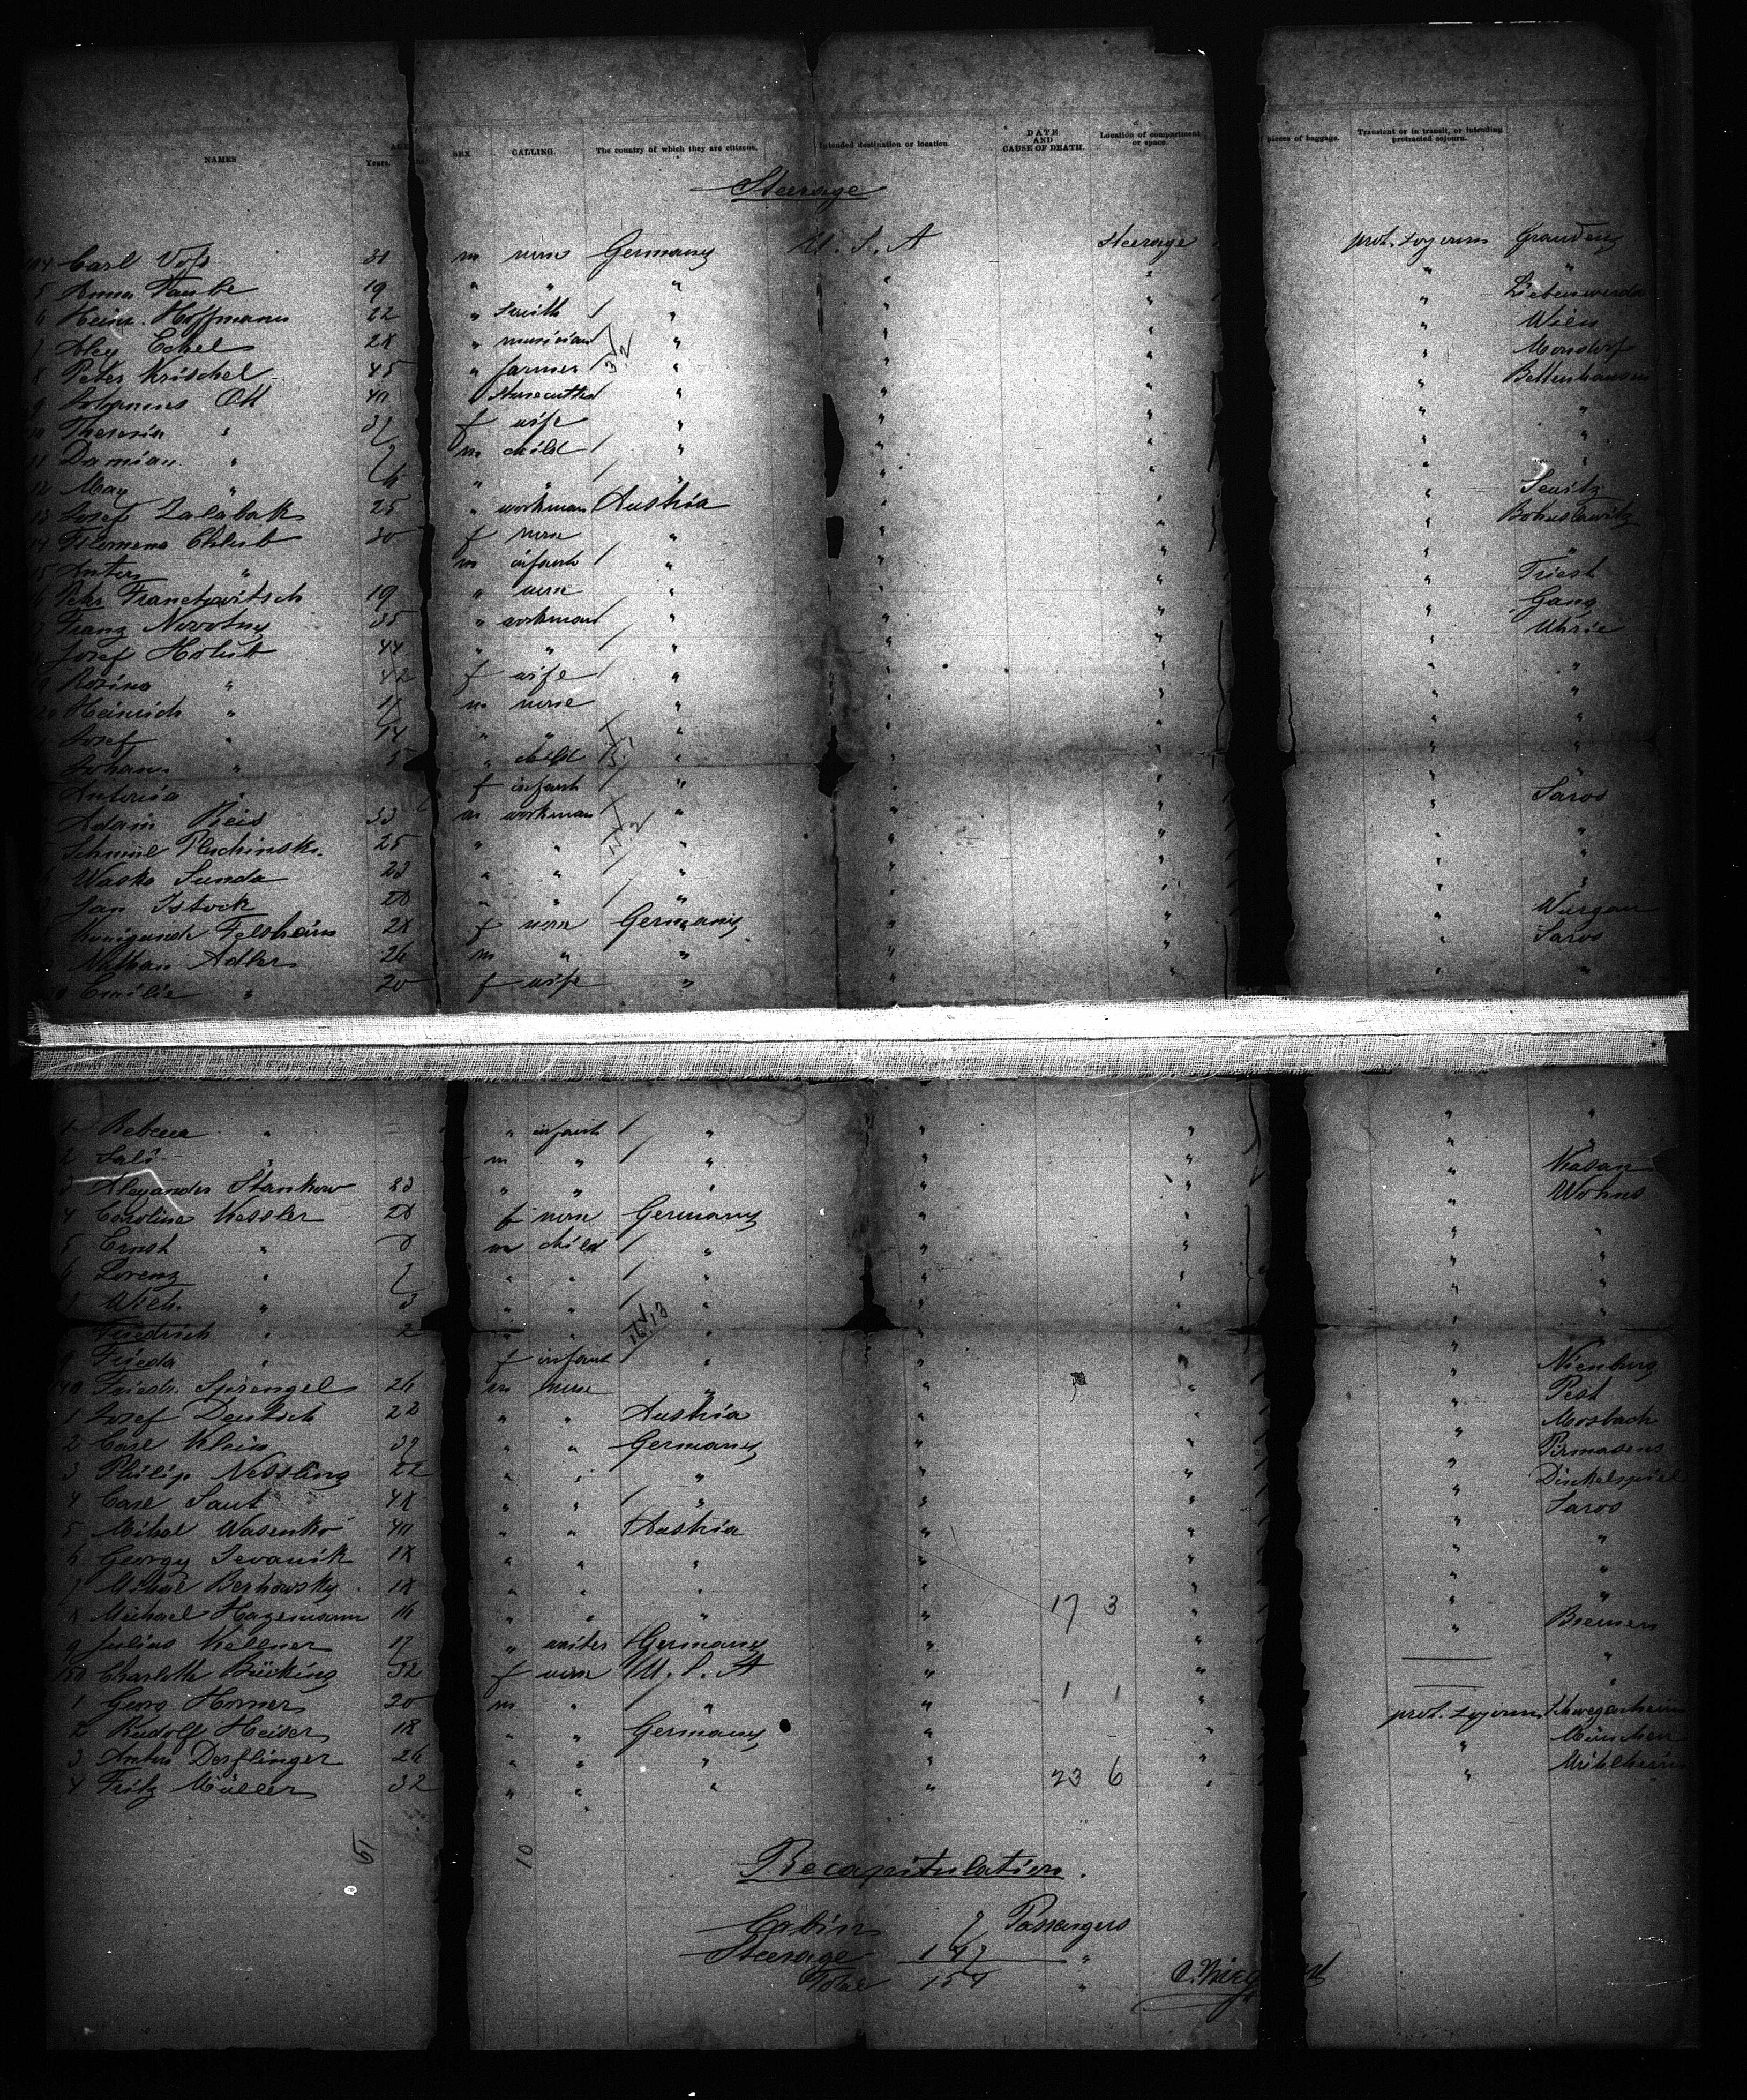 NAMES AGE Years. SEX. CALLING. The country of which they are citizens. Intended destination or location. DATE AND CAUSE OF DEATH. Location of compartment or space. pieces of baggage. Transient or in transit, or intending protracted sojourn.
Steerage
Carl Voss 31 m none Germany U.S.A Steerage prot. sojourn Graudenz
5 Anna Taube 19 " " " " " " "
6 Heinr. Hoffmann 22 " Smith / " " " " Liebenwerda
Eckel 28 " musician / " " " " Wien
8 Peter Krischel 45 " farmer / " " " " Mondorf
9 Johannes Ott 40 Stonecutter / " " " " Bettenhausen
10 Theresia " 37 f wife " " " " "
11 Damian " 7 m child / " " " " "
12 Max " 6 " " / " " " " "
13 Josef Zalabak 25 " workman Austria " " "
14 Filomena Chlub 30 f none " " " " Bohuslawitz
15 Anton " m infant / " " " " "
16 Petr Franchavitsch 19 " none " " " " Triest
Franz Novotny 35 " workman / " " " " Gang
Josef Holub 44 " " / " " " "
9 Rozina " 42 f wife / " " " " "
20 Heinrich " 17 m none " " " " "
Josef " 14 " " " " " " "
Johann " 5 " child " " " " "
Antonia " f infant / " " " "
Adam Reis 33 m workman / " " " " Saros
Schmiel Pluchinski 25 " " " " " " "
Wasko Sunda 23 " " / " " " " "
Jan Istock 28 " " / " " " " "
Kunigunde Felsheim 28 f none Germany " " "
Nathan Adler 26 m " " " " " Saros
30 Emilie " 20 f wife " " " " "
1 Rebecca " " infant / " " " " "
2 Sali " m " / " " " " "
3 Alexander Stankow 23 " " " " " " Kasan
4 Caroline Kessler 28 f none Germany " " "
5 Ernst " 8 m child / " " " " "
6 Lorenz " 7 " " / " " " " "
7 Wilh. " 3 " " / " " " " "
Friedrich " 2 " " " " " " "
9 Frieda " f infant / " " " "
140 Friedr. Sprengel 26 m none " " " " Nienburg
1 Josef Deutsch 22 " " Austria " " " Pest
2 Carl Klein 39 " " Germany " " " Mosbach
3 Philip Nessling 22 " " " " " " Pirmasens
4 Carl Saut 48 " " / " " " "
5 Mihal Wasenko 40 " " Austria " " " Saros
6 Georgy Sevanik 18 " " " " " " "
7 Mihal Berhowsky 18 " " " " " " "
8 Michael Hagemann 16 " " " " 17 3 " " "
9 Julius Kellner 17 " waiter Germany " " " Bremen
150 Charlotte Bücking 52 f none U.S.A " " "
1 Georg Horner 20 m " / " " 1 1 " "
2 Rudolf Heiser 18 " " Germany " " prot. sojourn
3 Anton Derflinger 26 " " " " " " München
4 Fritz Müller 32 " " " " 23 6 " " Mühlheim
10
Recapitulation.
Cabin 7 Passengers
Steerage 147 "
Total 154 "